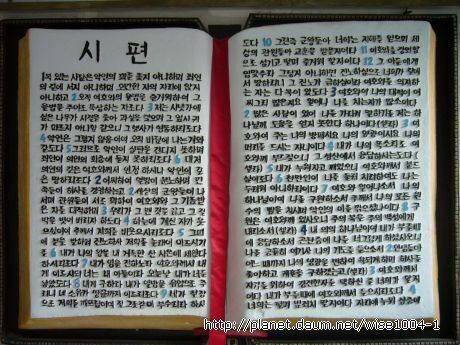 시 편
복 있는 사람은 악인의 꾀를 좇지 아니하며 죄인
의 길에 서지 아니하며 오만한 자의 자리에 앉지
아니하고 2 오직 여호와의 율법을 즐거워하여 그
율법을 주야로 묵상하는 자로다 3 저는 시냇가에
심은 나무가 시절을 좇아 과실을 맺으며 그 잎사귀
가 마르지 아니함 같으니 그 행사가 다 형통하리로다
4 악인은 그렇지 않음이여 오직 바람에 나는 겨와
같도다 5 그러므로 악인이 심판을 견디지 못하며
죄인이 의인의 회중에 들지 못하리로다 6 대저
의인의 길은 여호와께서 인정하시나 악인의 길
은 망하리로다 2 어찌하여 열방이 분노하며 민
족들이 허사를 경영하는고 2 세상의 군왕들이 나
서며 관원들이 서로 꾀하여 여호와와 그 기름받
은 자를 대적하며 3 우리가 그 맨 것을 끊고 그 결
박을 벗어 버리자 하도다 4 하늘에 계신 자가 웃
으심이여 주께서 저희를 비웃으시리로다 5 그 때
에 분을 발하며 진노하사 저희를 놀래어 이르시기
를 6 내가 나의 왕을 내 거룩한 산 시온에 세웠다
하시리로다 7 내가 영을 전하노라 여호와께서 내
게 이르시되 너는 내 아들이라 오늘날 내가 너를
낳았도다 8 내게 구하라 내가 열방을 유업으로 주
리니 네 소유가 땅끝까지 이르리로다 9 네가 철장
으로 저희를 깨뜨림이여 질그릇 같이 부수리라 하시
도다 10 그런즉 군왕들아 너희는 지혜를 얻으며 세
상의 관원들아 교훈을 받을지어다 11 여호와를 경외함
으로 섬기고 떨며 즐거워할지어다 12 그 아들에게
입맞추라 그렇지 아니하면 진노하심으로 너희가 길에
서 망하리니 그 진노가 급하심이라 여호와를 의지하
는 자는 다 복이 있도다 3 여호와여 나의 대적이 어
찌 그리 많은지요 일어나 나를 치는 자가 많소이다
2 많은 사람이 있어 나를 가리켜 말하기를 저는 하
나님께 도움을 얻지 못한다 하나이다 (셀라) 3 여
호와여 주는 나의 방패시요 나의 영광이시요 나의
머리를 드시는 자니이다 4 내가 나의 목소리로 여
호와께 부르짖으니 그 성산에서 응답하시는도다 (
셀라) 5 내가 누워 자고 깨었으니 여호와께서 나를 붙드
심이로다 6 천만인이 나를 둘러치려 하여도 나는
두려워 아니하리이다 7 여호와여 일어나소서 나의
하나님이여 나를 구원하소서 주께서 나의 모든 원
수의 뺨을 치시며 악인의 이를 꺾으셨나이다 8 구
원은 여호와께 있사오니 주의 복을 주의 백성에게
내리소서 (셀라) 4 내 의의 하나님이여 내가 부를 때
에 응답하소서 곤란 중에 나를 너그럽게 하셨사오니
나를 긍휼히 여기사 나의 기도를 들으소서 2 인생들아
http://planet.daum.net/wise1004-1